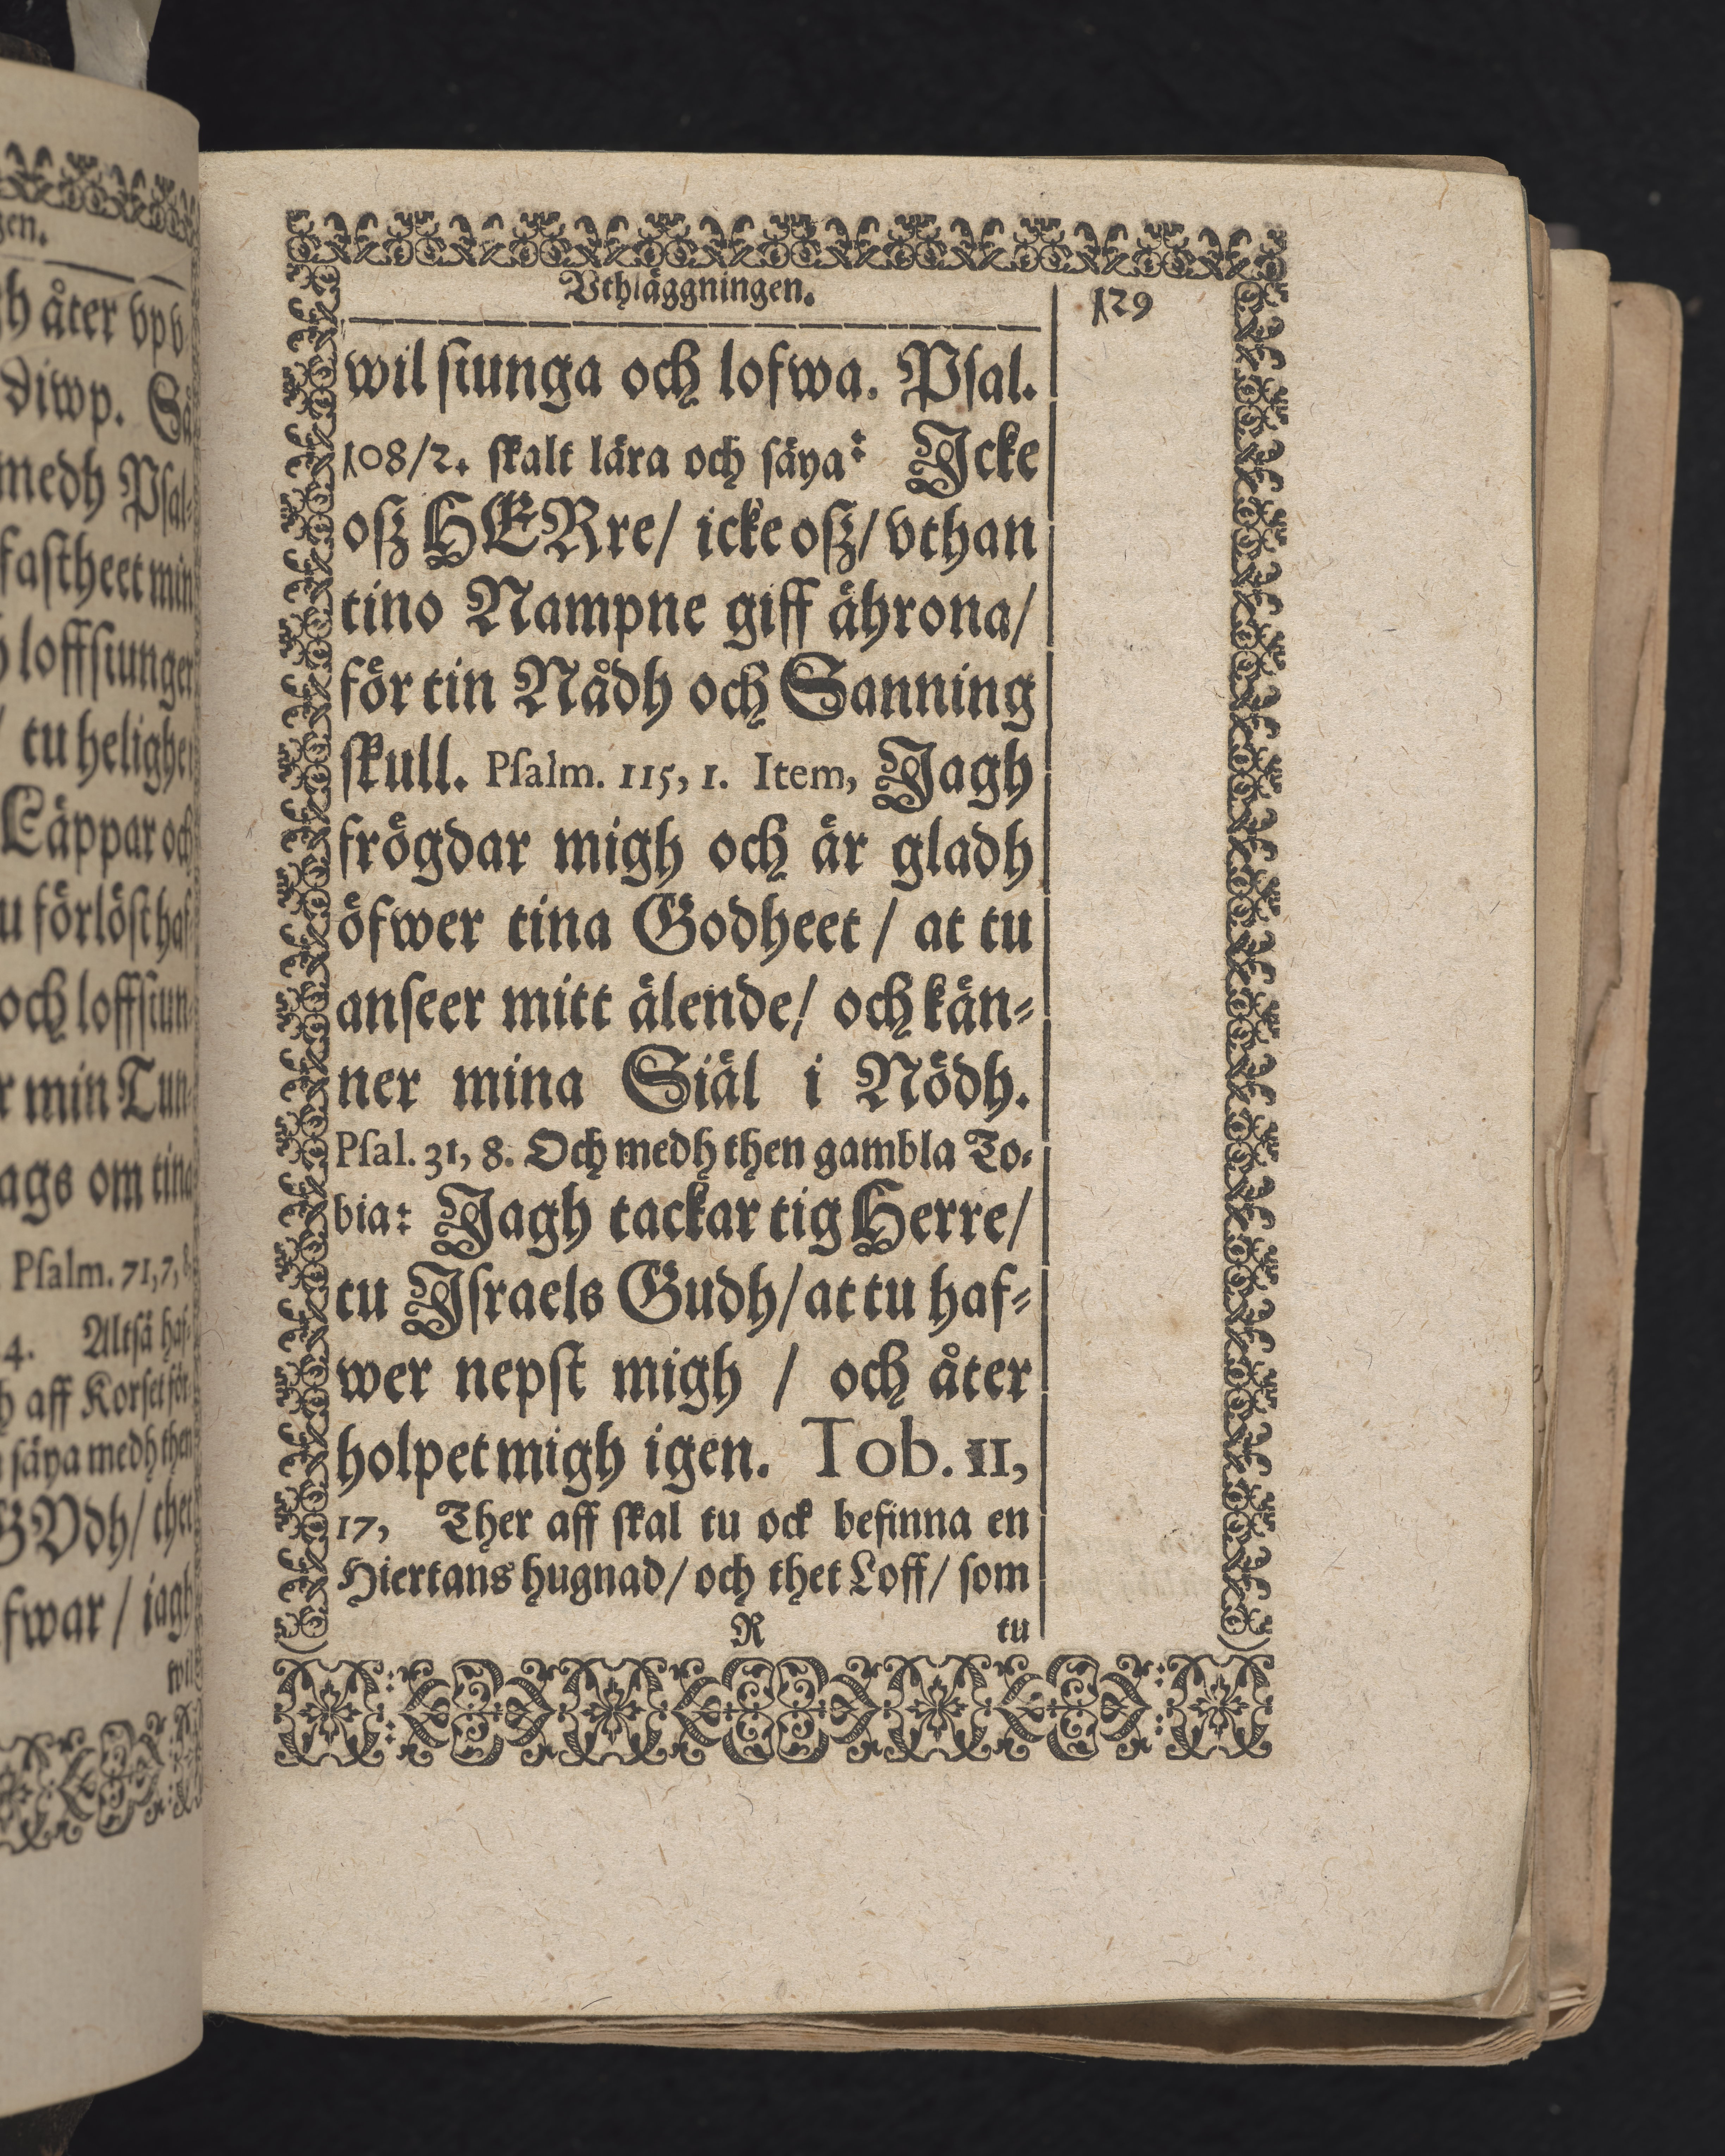 gen.
åter vpv
diwp. Så
medh Psal-
fastheet min
loffsiunger
/ tu helighet
Läppar och
u förlöst haf-
och loffsiun-
r min Tun-
ags om tina
Psalm. 71,7,8
4. Altså haf-
aff Korset för
säya medh then
GVdh/ thet
fwar / iagh
wil
Vthläggningen.
129
wil siunga och lofwa. Psal.
108/2. skalt lära och säya: Icke
osz HERre/ icke osz/ vthan
tino Nampne giff ährona/
för tin Nådh och Sanning
skull. Psalm. 115, 1. Item, Jagh
frögdar migh och är gladh
öfwer tina Godheet / at tu
anseer mitt älende/ och kän-
ner mina Siäl i Nödh.
Psal. 31, 8. Och medh then gambla To-
bia: Jagh tackar tig Herre/
tu Israels Gudh/ at tu haf-
wer nepst migh / och åter
holpet migh igen. Tob. 11,
17, Ther aff skal tu ock befinna en
Hiertans hugnad/ och thet Loff/ som
R tu